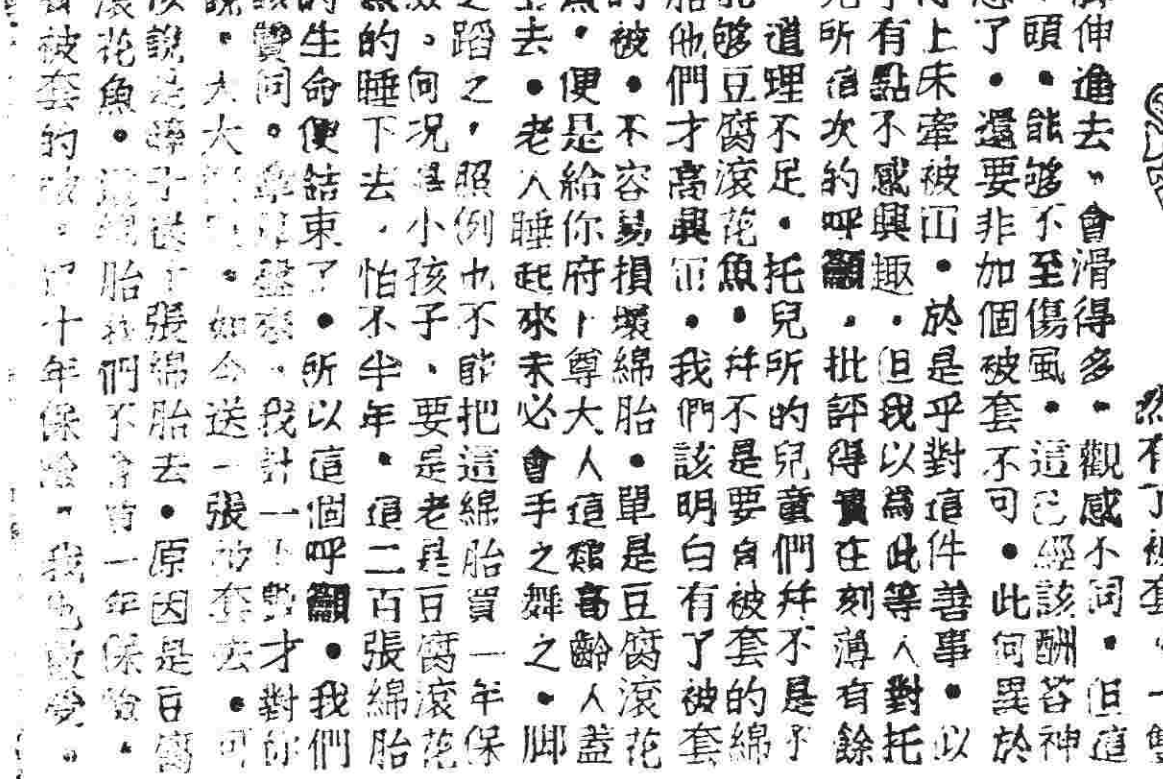 然有了被套，一雙
腳伸進去，會滑得多。觀感不同。但這
頭。能够不至傷風。這已經該酬荅神
了。還要非加個被套不可。此何異於
上床牽被冚。於是乎對這件善事。以
有點不感興趣。但我以為此等人對托
所這次的呼籲。批評得實在刻薄有餘
道理不足。托兒所的兒童們幷不是不
够豆腐滾花魚。幷不是要有被套的綿
胎他們才高興冚。我們該明白有了被套
的被。不容易損壞綿胎。單是豆腐滾花
魚。便是給你府上尊大人這類高齡人蓋
去。老人睡起來未必會手之舞之。脚
之蹈之，照例也不能把這綿胎買一年保
。何况是小孩子，要是老是豆腐滾花
的睡下去，怕不半年。這二百張綿胎
的生命便結束了。所以這個呼籲。我們
贊同。拿算盤來，我計一下數才對你
說。大大。如今送一張被套去。可
說是張綿胎去。原因是豆腐
滾花魚。綿胎我們不會肯一年保險。
被套的被。十年保險。我也敢受。